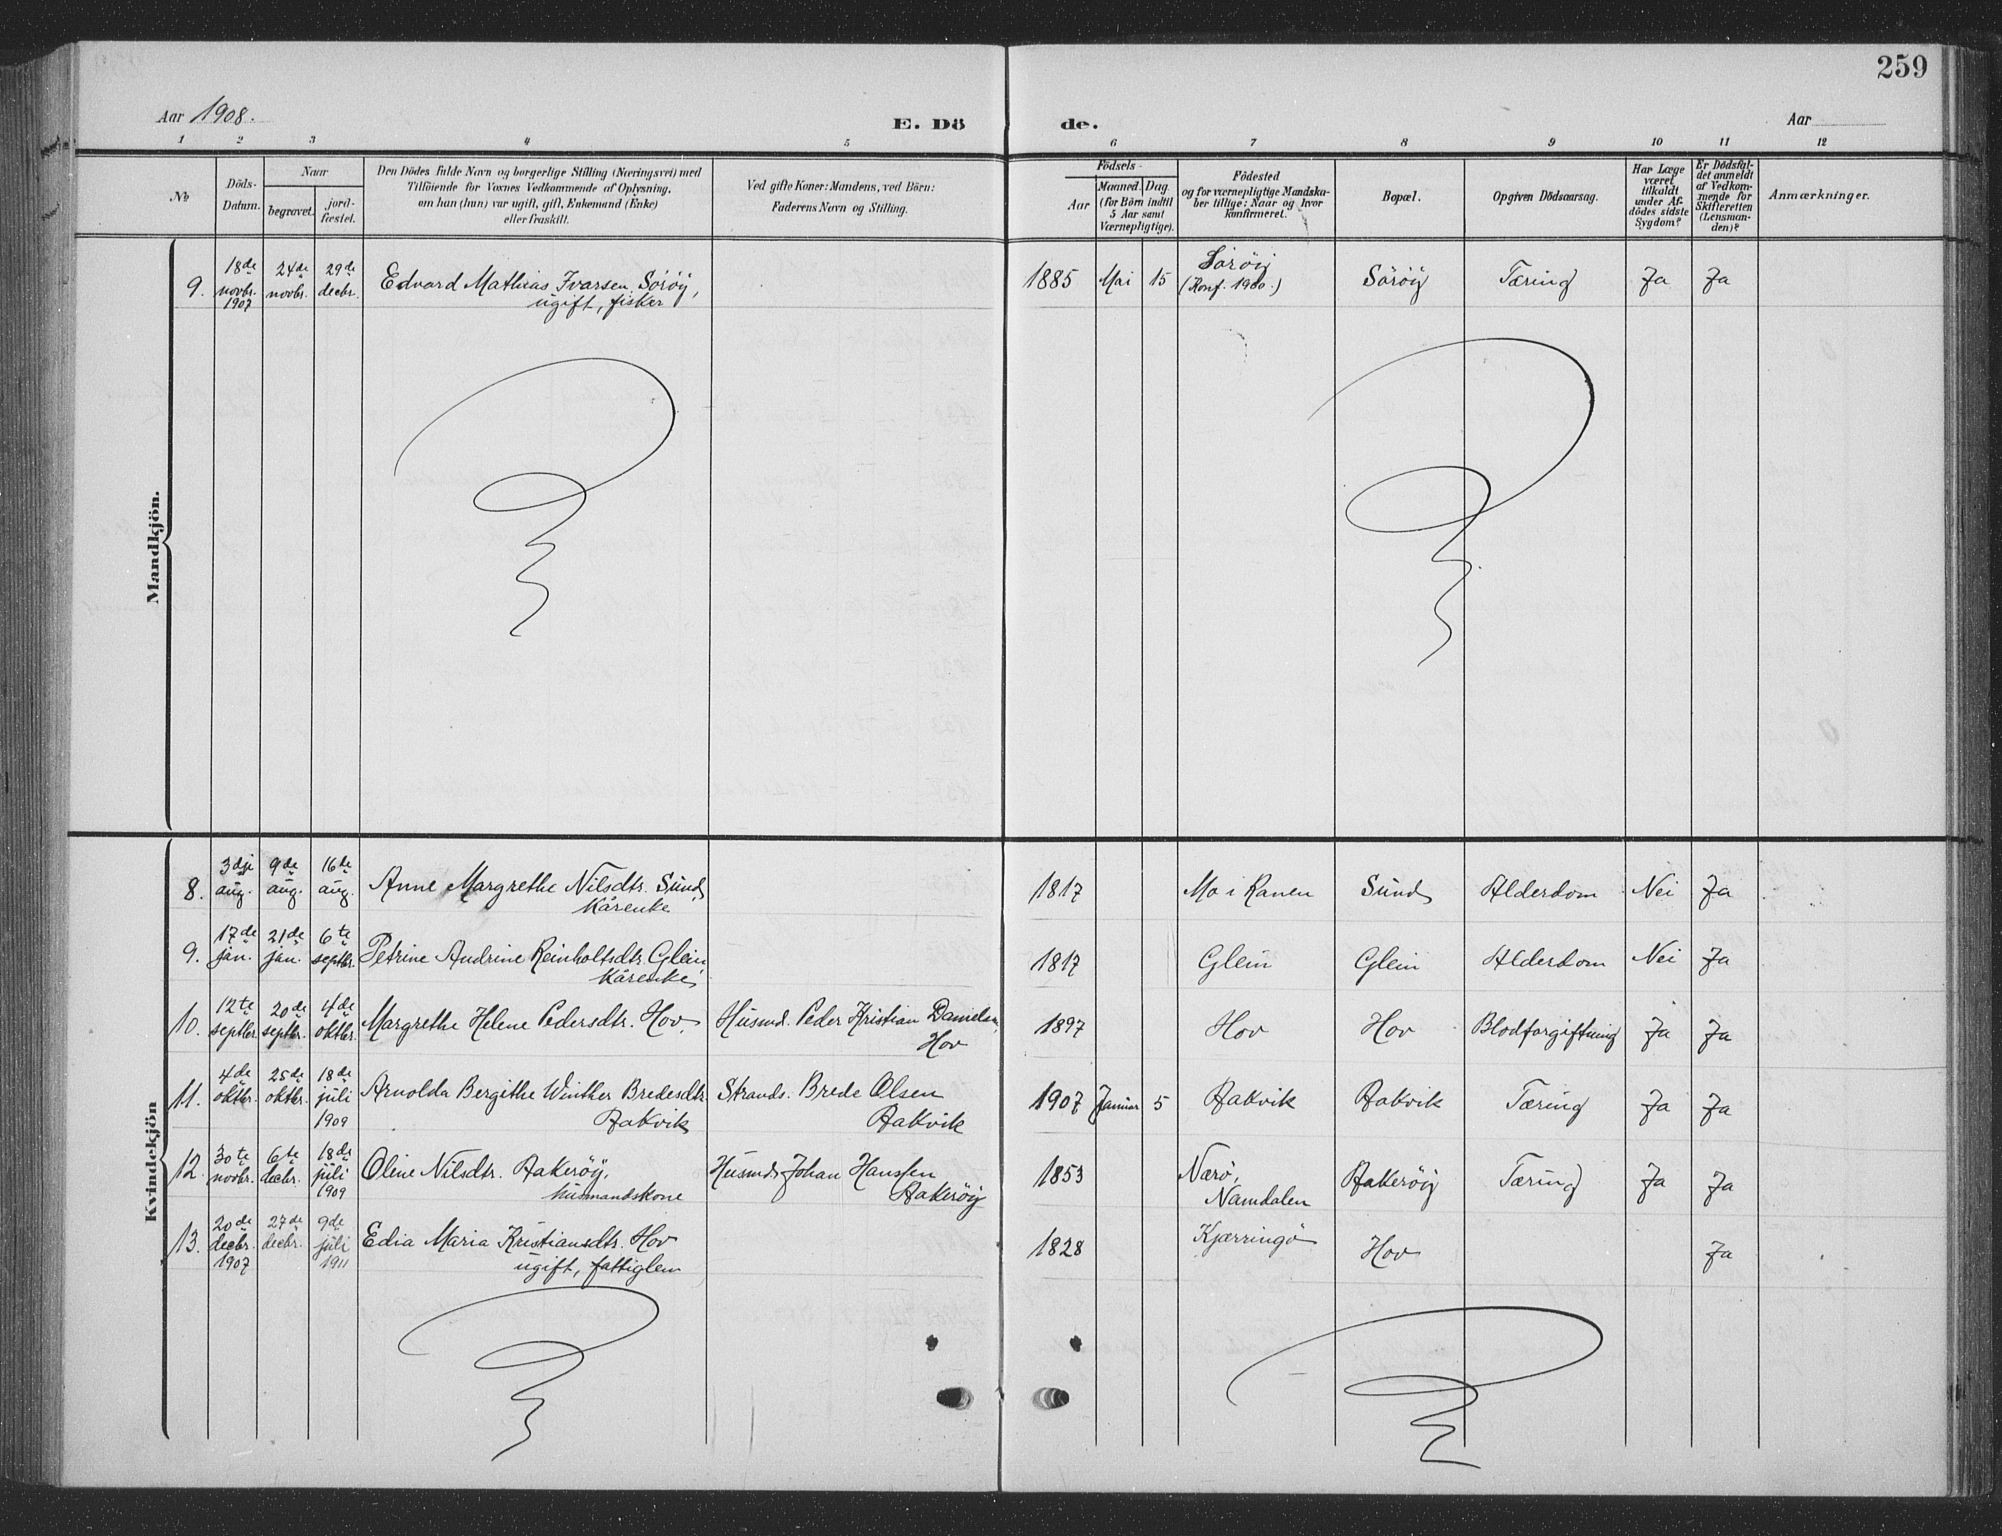 259
Aar 1908.
E. Dö de.
Aar
1 2 3 4 5 6 7 8 9 10 11 12
No
Döds-
Datum.
Naar
begravet.
jord-
fæstet.
Den Dödes fulde Navn og borgerlige Stilling (Næringsvei) med
Tilföiende for Voxnes Vedkommende af Oplysning,
om han (hun) var ugift, gift, Enkemand (Enke)
eller fraskilt.
Ved gifte Koner: Mandens, ved Börn:
Faderens Navn og Stilling.
Födsels-
Aar
Maaned. Dag
(for Börn indtil
5 Aar samt
Værnepligtige).
Födested
og for værnepligtige Mandska-
ber tillige: Naar og hvor
konfirmeret.
Bopæl.
Opgiven Dödsaarsag.
Har Læge
været
tilkaldt
under Af-
dödes sidste
Sygdom?
Er Dödsfal-
det anmeldt
af Vedkom-
mende for
Skifteretten
(Lensman-
den)?
Anmærkninger.
Mandkjön.
9.
18de
novbr.
1907
24de
novbr.
29de
decbr.
Edvard Mathias Ivarsen, Söröy,
ugift, fisker
1885 Mai 15
Söröy
(Konf. 1900.)
Söröy Tæring Ja Ja
Kvindekjön
8.
3dje
aug.
9de
aug.
16de
aug.
Anne Margrethe Nilsdtr. Sund,
Kårenke
1817 Mo i Ranen Sund Alderdom Nei Ja
9.
17de
jan.
21de
jan.
6te
septbr.
Petrine Andrine Reinholtsdtr. Glein,
Kårenke
1817 Glein Glein Alderdom Nei Ja
10.
12te
septbr.
20de
septbr.
4de
oktbr.
Margrethe Helene Pedersdtr. Hov,
Husmd. Peder Kristian Danielsen,
Hov
1897 Hov Hov Blodforgiftning Ja Ja
11.
4de
oktbr.
25de
oktbr.
18de
juli
1909
Arnolda Bergithe Winther Bredesdtr.
Aakvik
Strands. Brede Olsen
Aakvik
1907 Januar 5 Aakvik Aakvik Tæring Ja Ja
12.
30te
novbr.
6te
decbr.
18de
juli
1909
Oline Nilsdtr. Aakeröy,
husmandskone
Husmd. Johan Hanssen
Aakeröy
1853
Nærö,
Namdalen
Aakeröy Tæring Ja Ja
13.
20de
decbr.
1907
27de
decbr.
9de
juli
1911
Edia Maria Kristiansdtr. Hov
ugift, fattiglem
1828 Kjærringö Hov Ja